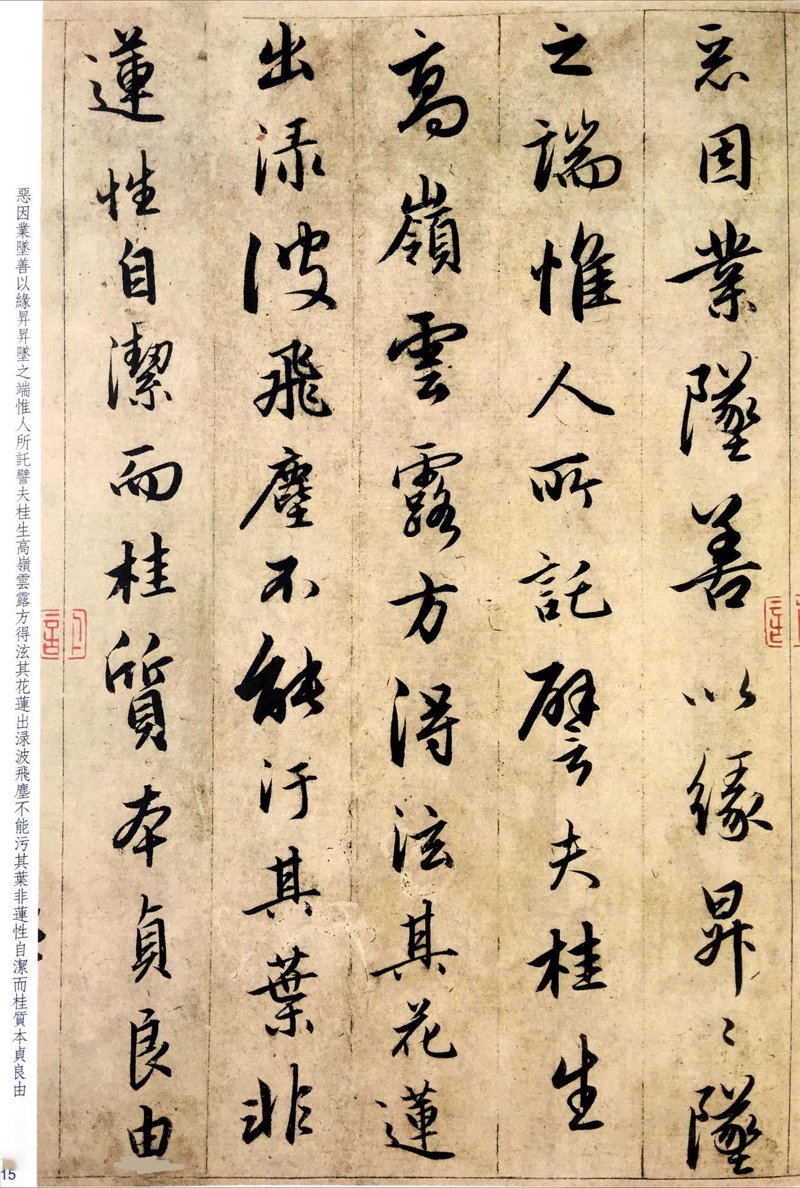 惡因業墜善以緣昇〻墜
之端惟人所託譬夫桂生
高嶺雲露方得泫其花蓮
出渌波飛塵不能汙其葉非
蓮性自潔而桂質本貞良由
惡因業墜善以緣昇昇墜之端惟人所託譬夫桂生高嶺雲露方得泫其花蓮出渌波飛塵不能污其葉非蓮性自潔而桂質本貞良由
15